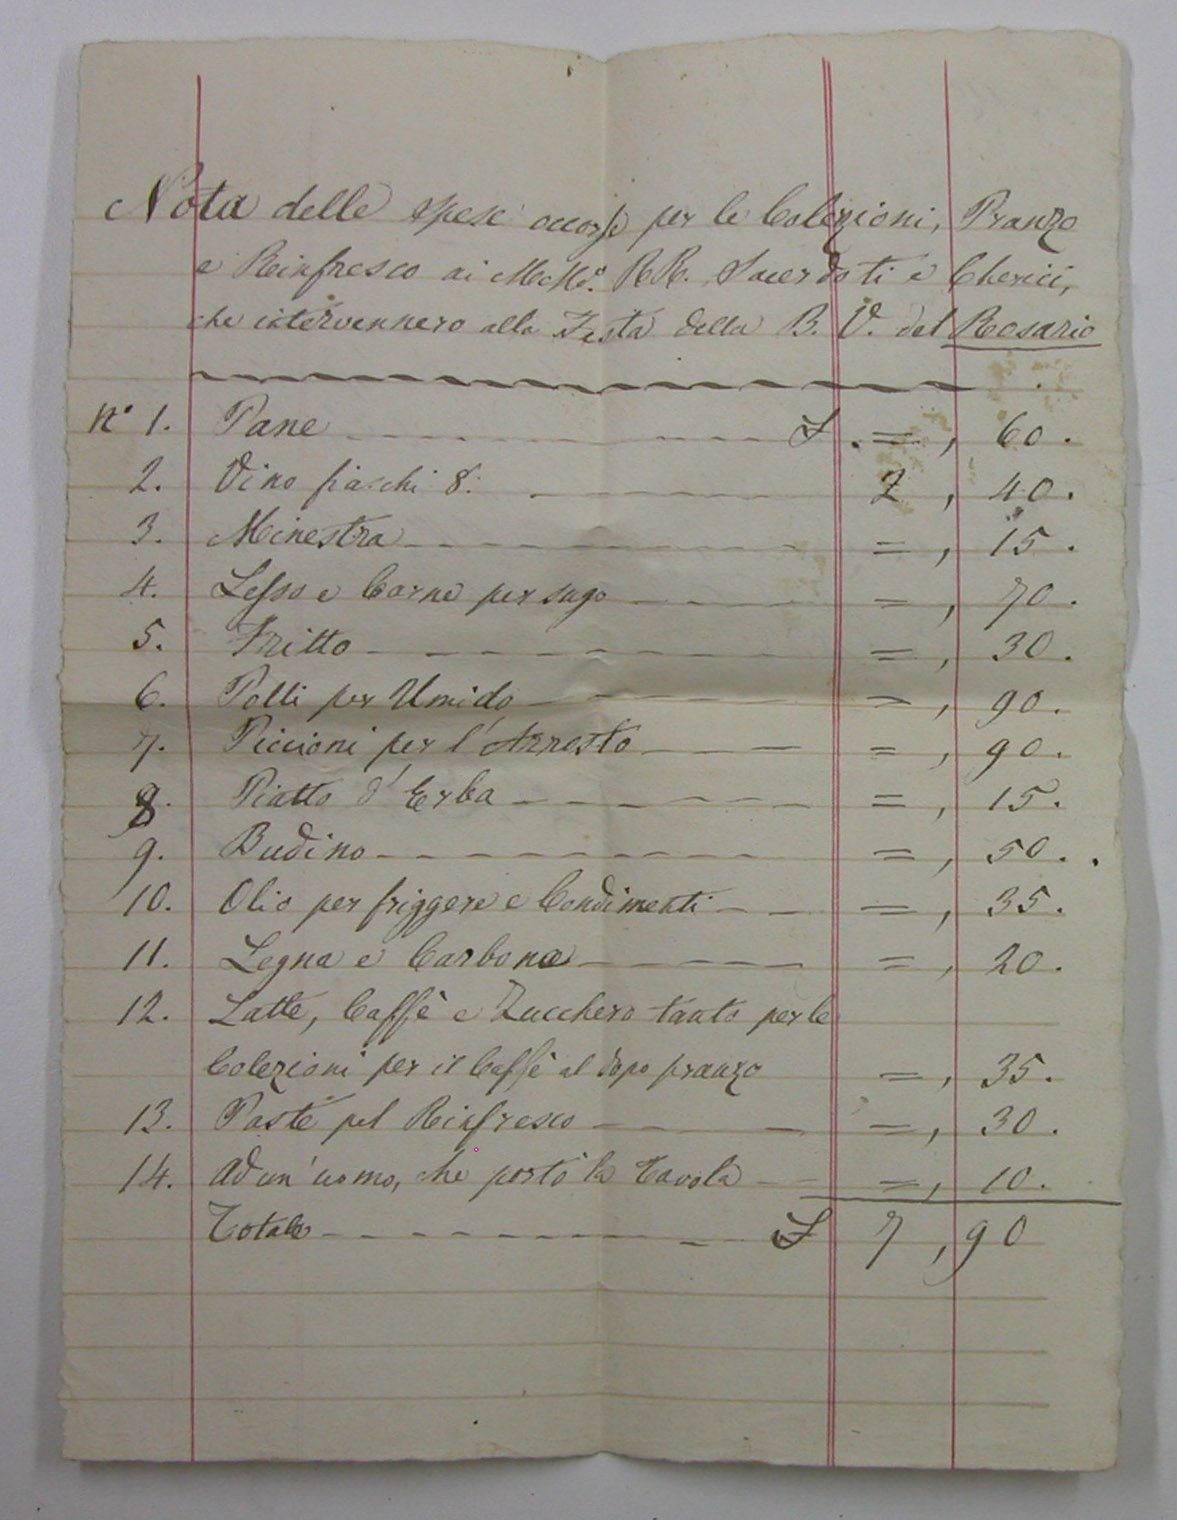 Nota delle spese occorse per le Colezioni, Pranzo
e Rinfresco ai MM. RR. Sacerdoti e Cherici,
che intervennero alla Festa della B. V. del Rosario
N° 1. Pane £ = , 60.
2. Vino fiaschi 8. 2 , 40.
3. Minestra = , 15.
4. Lesso e Carne per sugo = , 70.
5. Fritto = , 30.
6. Polli per Umido = , 90.
7. Piccioni per l'Arrosto = , 90.
8. Piatto d'Erba = , 15.
9. Budino = , 50.
10. Olio per friggere e Condimenti = , 35.
11. Legna e Carbone = , 20.
12. Latte, Caffè e Zucchero tanto per le
Colezioni per il Caffè al dopo pranzo = , 35.
13. Paste pel Rinfresco = , 30.
14. Ad un'uomo, che portò la Tavola = , 10.
Totale £ 7 , 90